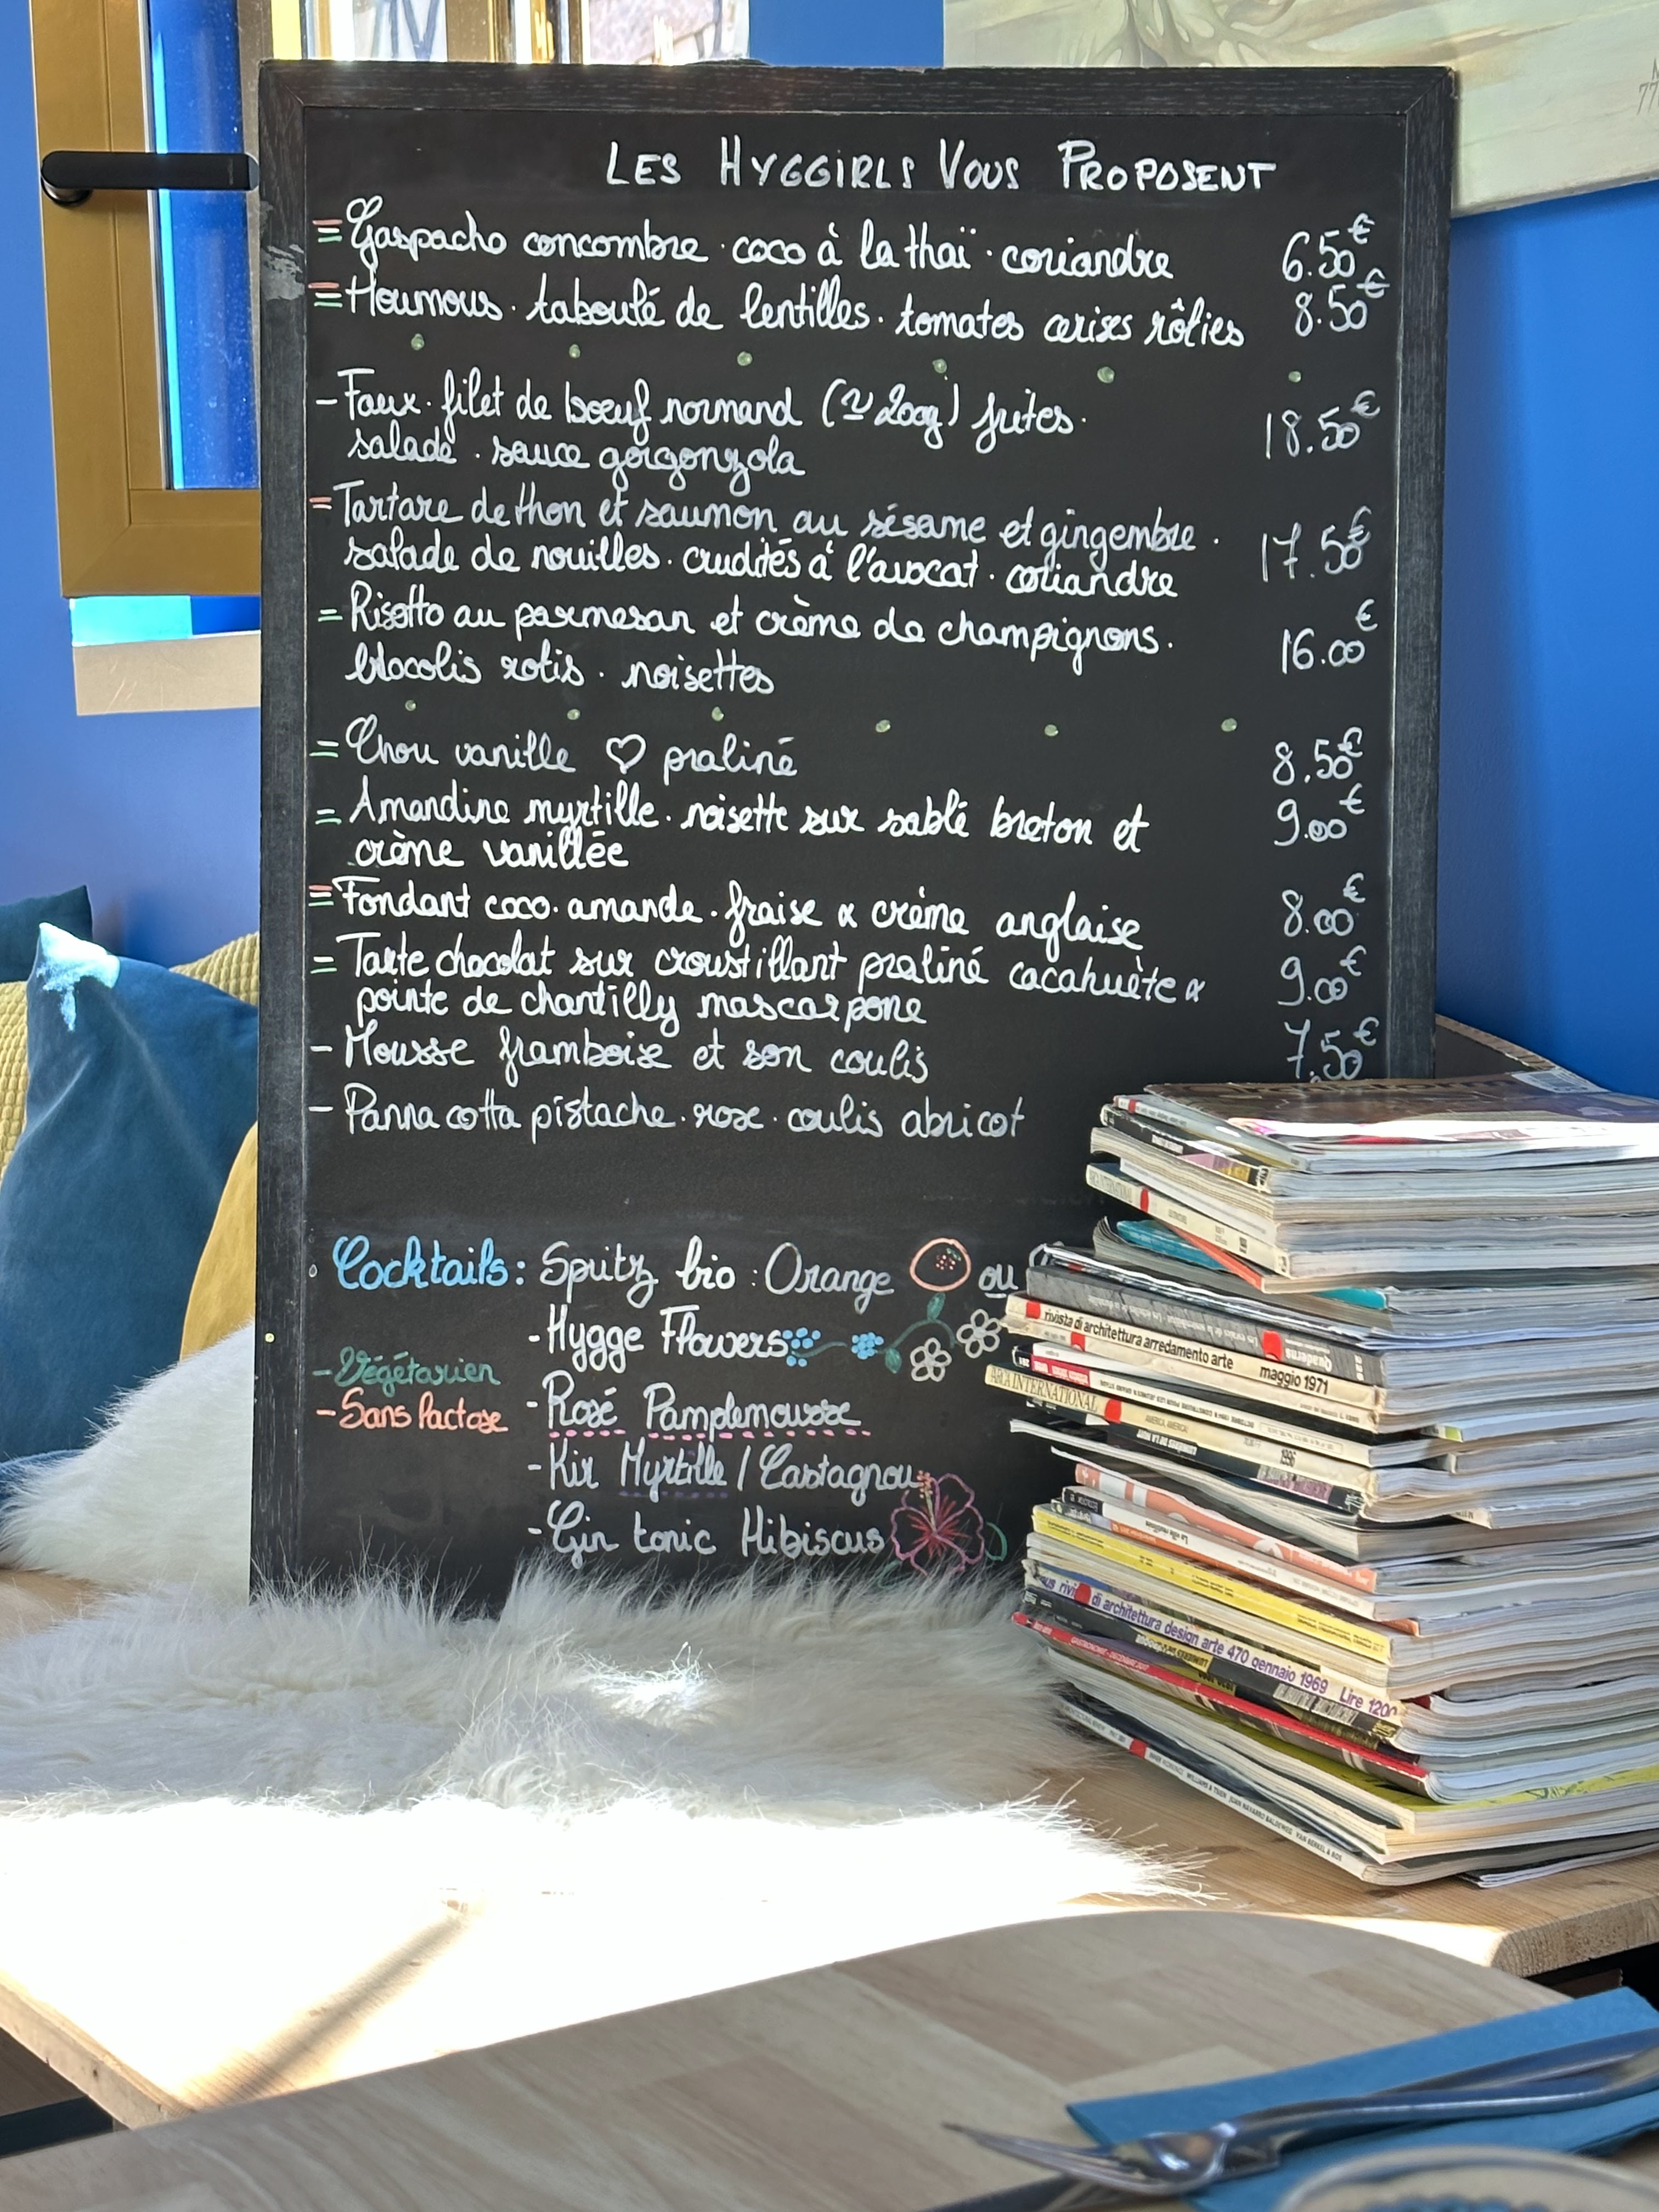 LES HYGGIRLS VOUS PROPOSENT
= Gaspacho concombre · coco à la thaï · coriandre 6.50€
= Houmous · taboulé de lentilles · tomates cerises rôties 8.50€
- Faux · filet de bœuf normand (≈ 200g) frites · 18.50€
salade · sauce gorgonzola
= Tartare de thon et saumon au sésame et gingembre · 17.50€
salade de nouilles · crudités à l'avocat · coriandre
= Risotto au parmesan et crème de champignons · 16.00€
brocolis rotis · noisettes
= Chou vanille ♡ praliné 8.50€
= Amandine myrtille · noisette sur sablé breton et 9.00€
crème vanillée
= Fondant coco · amande · fraise & crème anglaise 8.00€
= Tarte chocolat sur croustillant praliné cacahuète & 9.00€
pointe de chantilly mascarpone
- Mousse framboise et son coulis 7.50€
- Panna cotta pistache · rose · coulis abricot
Cocktails : Spritz bio : Orange ou
- Hygge Flowers
- Végétarien
- Sans lactose
- Rosé Pamplemousse
- Kir Myrtille / Castagnou
- Gin tonic Hibiscus
rivista di architettura arredamento arte maggio 1971
ARCA INTERNATIONAL
1996
di architettura design arte 470 gennaio 1969 Lire 1200